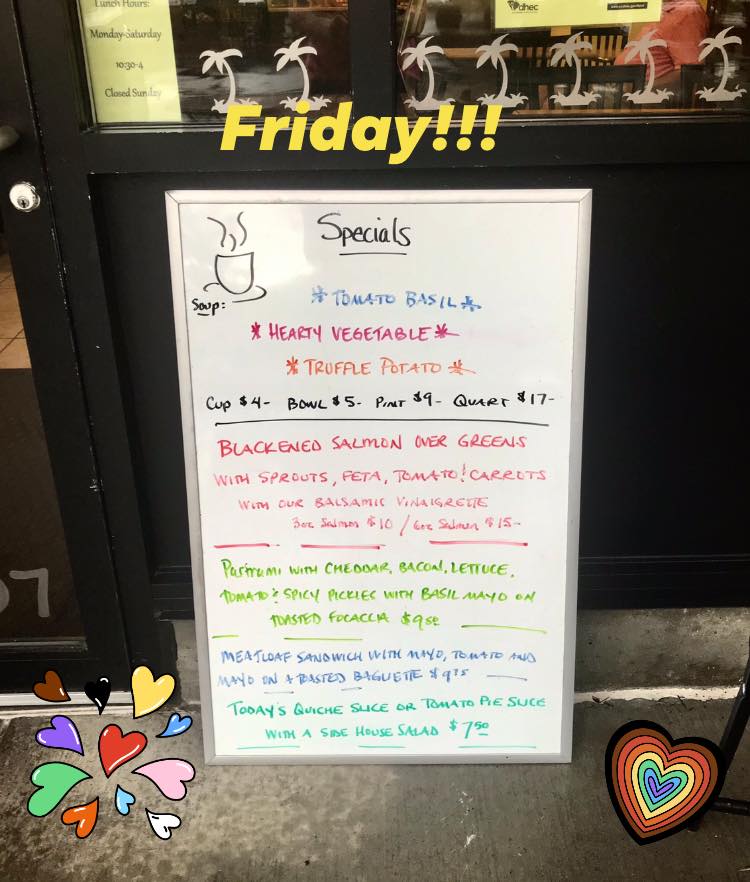 Lunch Hours:
Monday-Saturday
10:30-4
Closed Sunday
dhec
Friday!!!
Specials
Soup:
* TOMATO BASIL *
* HEARTY VEGETABLE *
* TRUFFLE POTATO *
CUP $4- BOWL $5- PINT $9- QUART $17-
BLACKENED SALMON OVER GREENS
WITH SPROUTS, FETA, TOMATO & CARROTS
WITH OUR BALSAMIC VINAIGRETTE
3oz Salmon $10 / 6oz Salmon $15-
Pastrami WITH CHEDDAR, BACON, LETTUCE,
TOMATO & SPICY PICKLES WITH BASIL MAYO ON
TOASTED FOCACCIA $9 50
MEATLOAF SANDWICH WITH MAYO, TOMATO AND
MAYO ON A TOASTED BAGUETTE $9 75
TODAY'S QUICHE SLICE OR TOMATO PIE SLICE
WITH A SIDE HOUSE SALAD $7 50